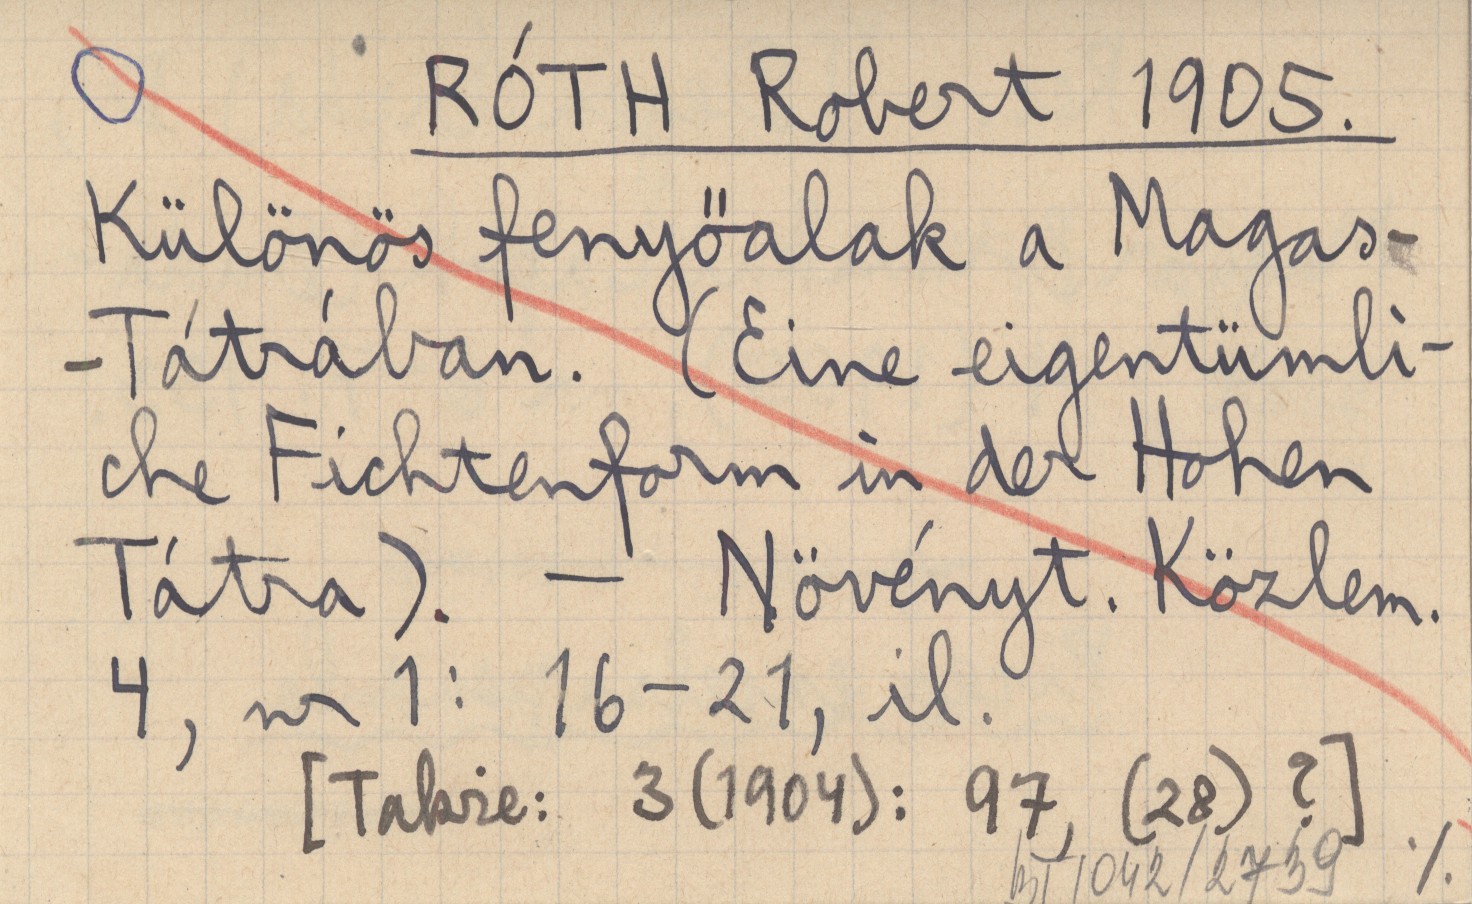 RÓTH Robert 1905.
Különös fenyőalak a Magas-
-Tátrában. (Eine eigentümli-
che Fichtenform in der Hohen
Tátra). — Növényt. Közlem.
4, nr 1: 16-21, il.
[Także: 3 (1904): 97, (28) ?]
1042/2739
./.